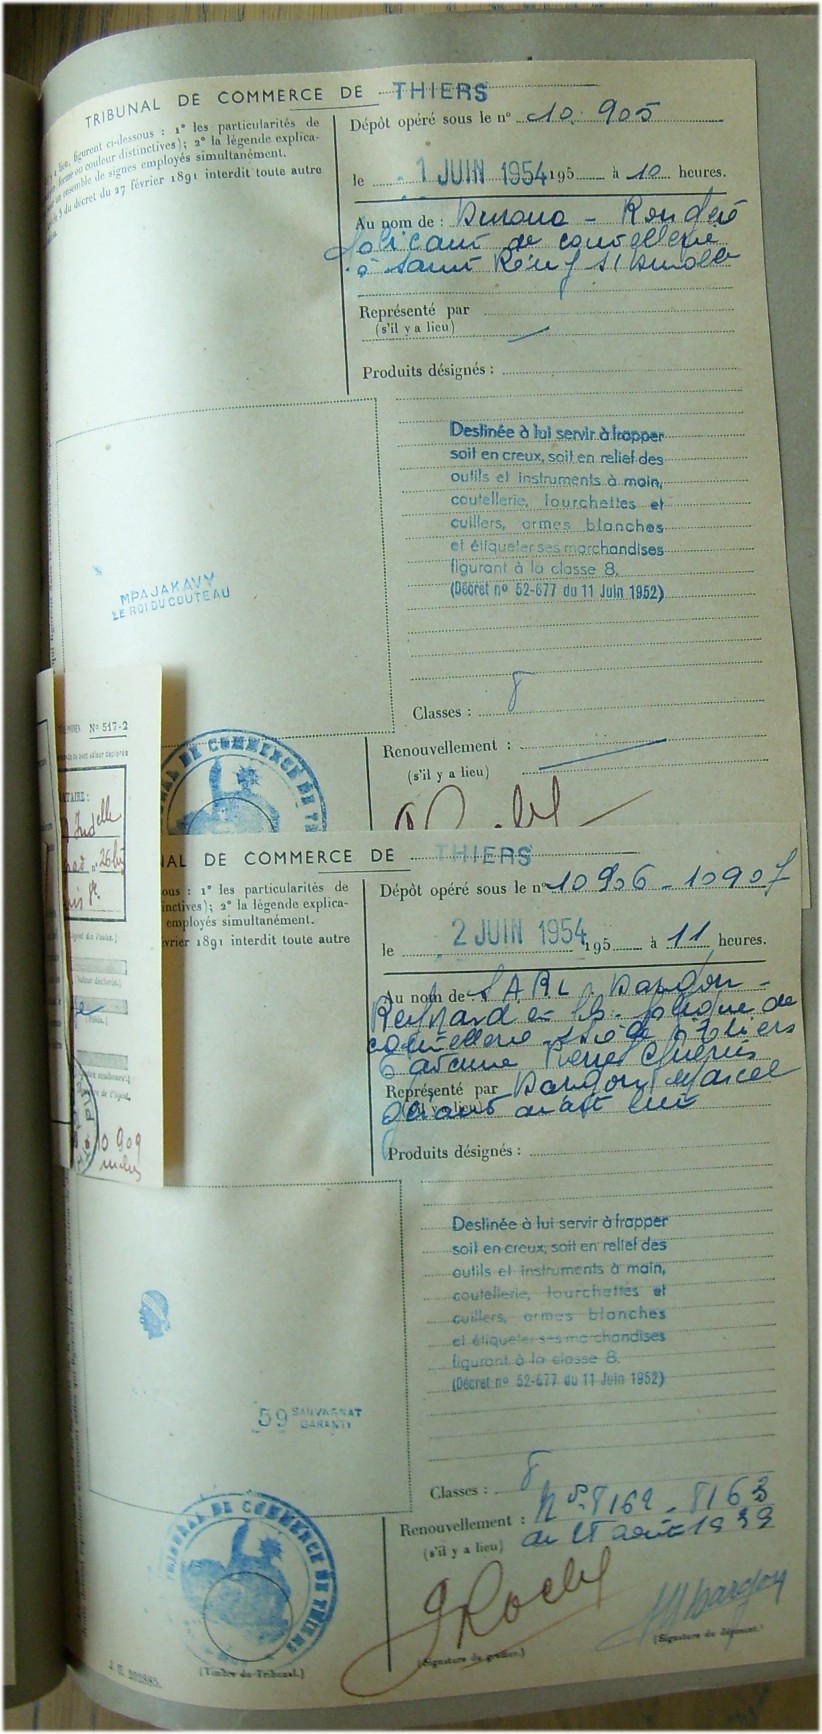 TRIBUNAL DE COMMERCE DE THIERS
lieu, figurent ci-dessous : 1° les particularités de
forme ou couleur distinctives) ; 2° la légende explica-
ensemble de signes employés simultanément.
5 du décret du 27 février 1891 interdit toute autre
Dépôt opéré sous le n° 10.905
le 1 JUIN 1954 195 à 10 heures.
Au nom de : - 
fabricant de coutellerie
à Saint Rémy s/ Durolle
Représenté par
(s'il y a lieu)
Produits désignés :
Destinée à lui servir à frapper
soit en creux, soit en relief des
outils et instruments à main,
coutellerie, fourchettes et
cuillers, armes blanches
et étiqueter ses marchandises
figurant à la classe 8.
(Décret n° 52-677 du 11 Juin 1952)
MPAJAKAVY
LE ROI DU COUTEAU
Classes : 8
Renouvellement :
(s'il y a lieu)
TRIBUNAL DE COMMERCE DE THIERS
N° 517-2
TAIRE :
26 bis
10 909
NAL DE COMMERCE DE THIERS
ous : 1° les particularités de
inctives) ; 2° la légende explica-
employés simultanément.
vrier 1891 interdit toute autre
Dépôt opéré sous le n° 10906 - 10907
le 2 JUIN 1954 195 à 11 heures.
Au nom de SARL Dargon -
fabrique de
coutellerie siège à Thiers
6 avenue Pierre Guérin
Représenté par Dargon Marcel
(s'il y a lieu) gérant
Produits désignés :
Destinée à lui servir à frapper
soit en creux, soit en relief des
outils et instruments à main,
coutellerie, fourchettes et
cuillers, armes blanches
et étiqueter ses marchandises
figurant à la classe 8.
(Décret n° 52-677 du 11 Juin 1952)
59 SAUVAGNAT
GARANTI
Classes : 8
Renouvellement : Nos 8162 - 8163
(s'il y a lieu) du août 1939
TRIBUNAL DE COMMERCE DE THIERS
(Timbre du Tribunal.)
(Signature du greffier.)
(Signature du déposant.)
J. U. 202885.